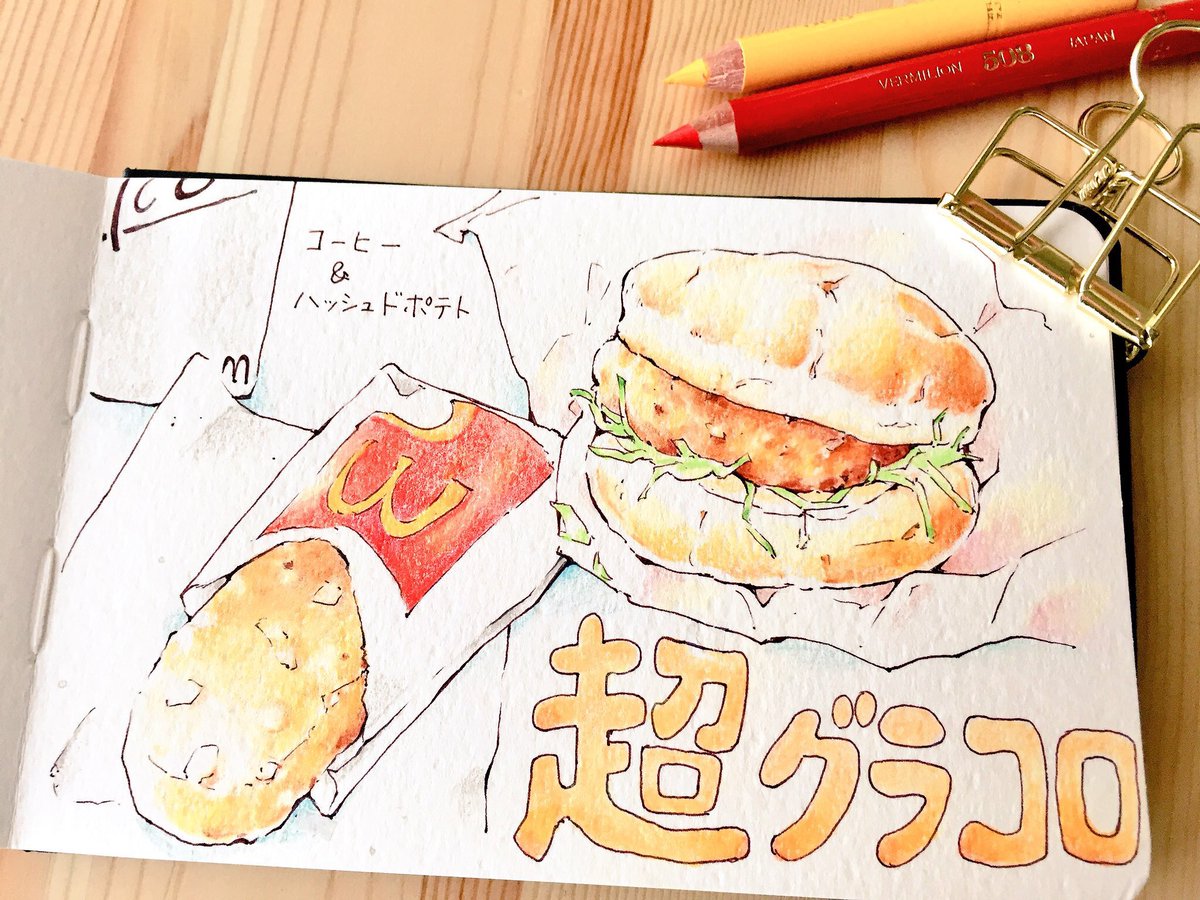 コーヒー
&
ハッシュドポテト
超グラコロ
VERMILION 508 JAPAN